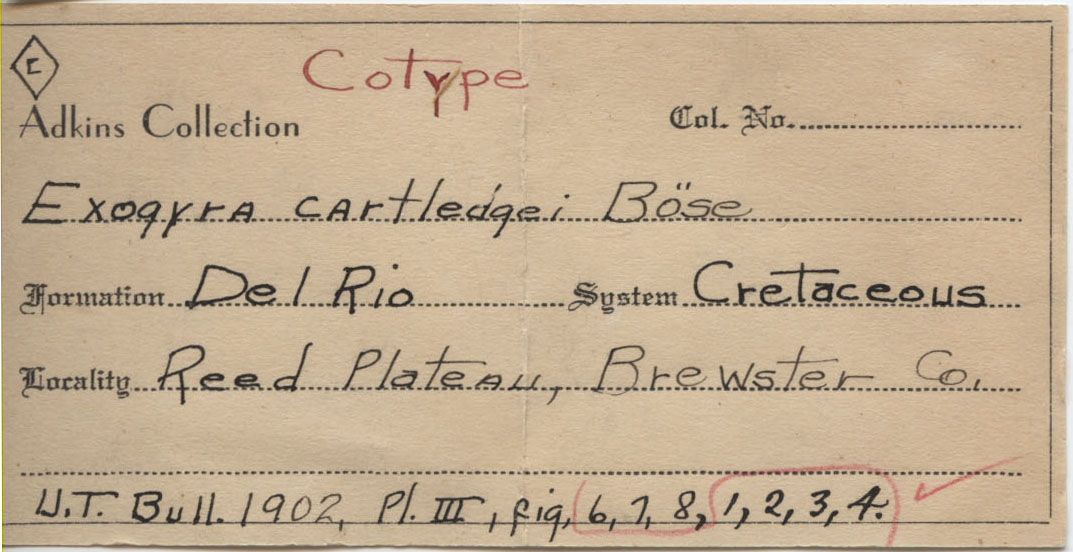 E
Cotype
Adkins Collection Col. No.
Exogyra cartledgei Böse
Formation Del Rio System Cretaceous
Locality Reed Plateau, Brewster Co.
U.T. Bull. 1902, Pl. III, fig, 6, 7, 8, 1, 2, 3, 4.